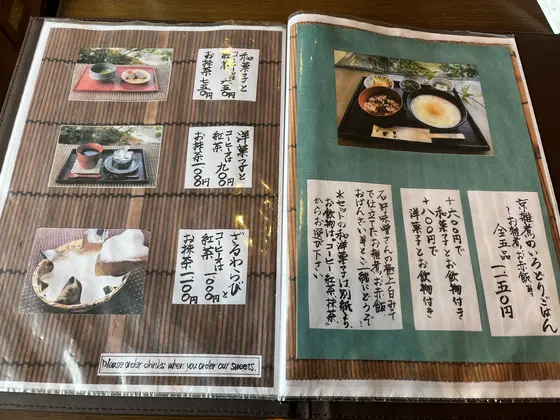 和菓子と
コーヒー又は
紅茶 八五〇円
お抹茶 九五〇円
洋菓子と
コーヒー又は
紅茶 九〇〇円
お抹茶 一、〇〇〇円
ざるわらびと
コーヒー又は
紅茶 一、〇〇〇円
お抹茶 一、一〇〇円
Please order drinks when you order our sweets.
京雑煮のいろどりごはん
～お雑煮、お赤飯等
全五品 一、二五〇円
+六〇〇円で
和菓子とお飲物付き
+八〇〇円で
洋菓子とお飲物付き
石野味噌さんの極上白みそ
で仕立てたお雑煮。お赤飯
おばんざい等ご一緒にどうぞ
*セットの和洋菓子は別紙より、
お飲物は、コーヒー、紅茶、抹茶
からお選び下さい